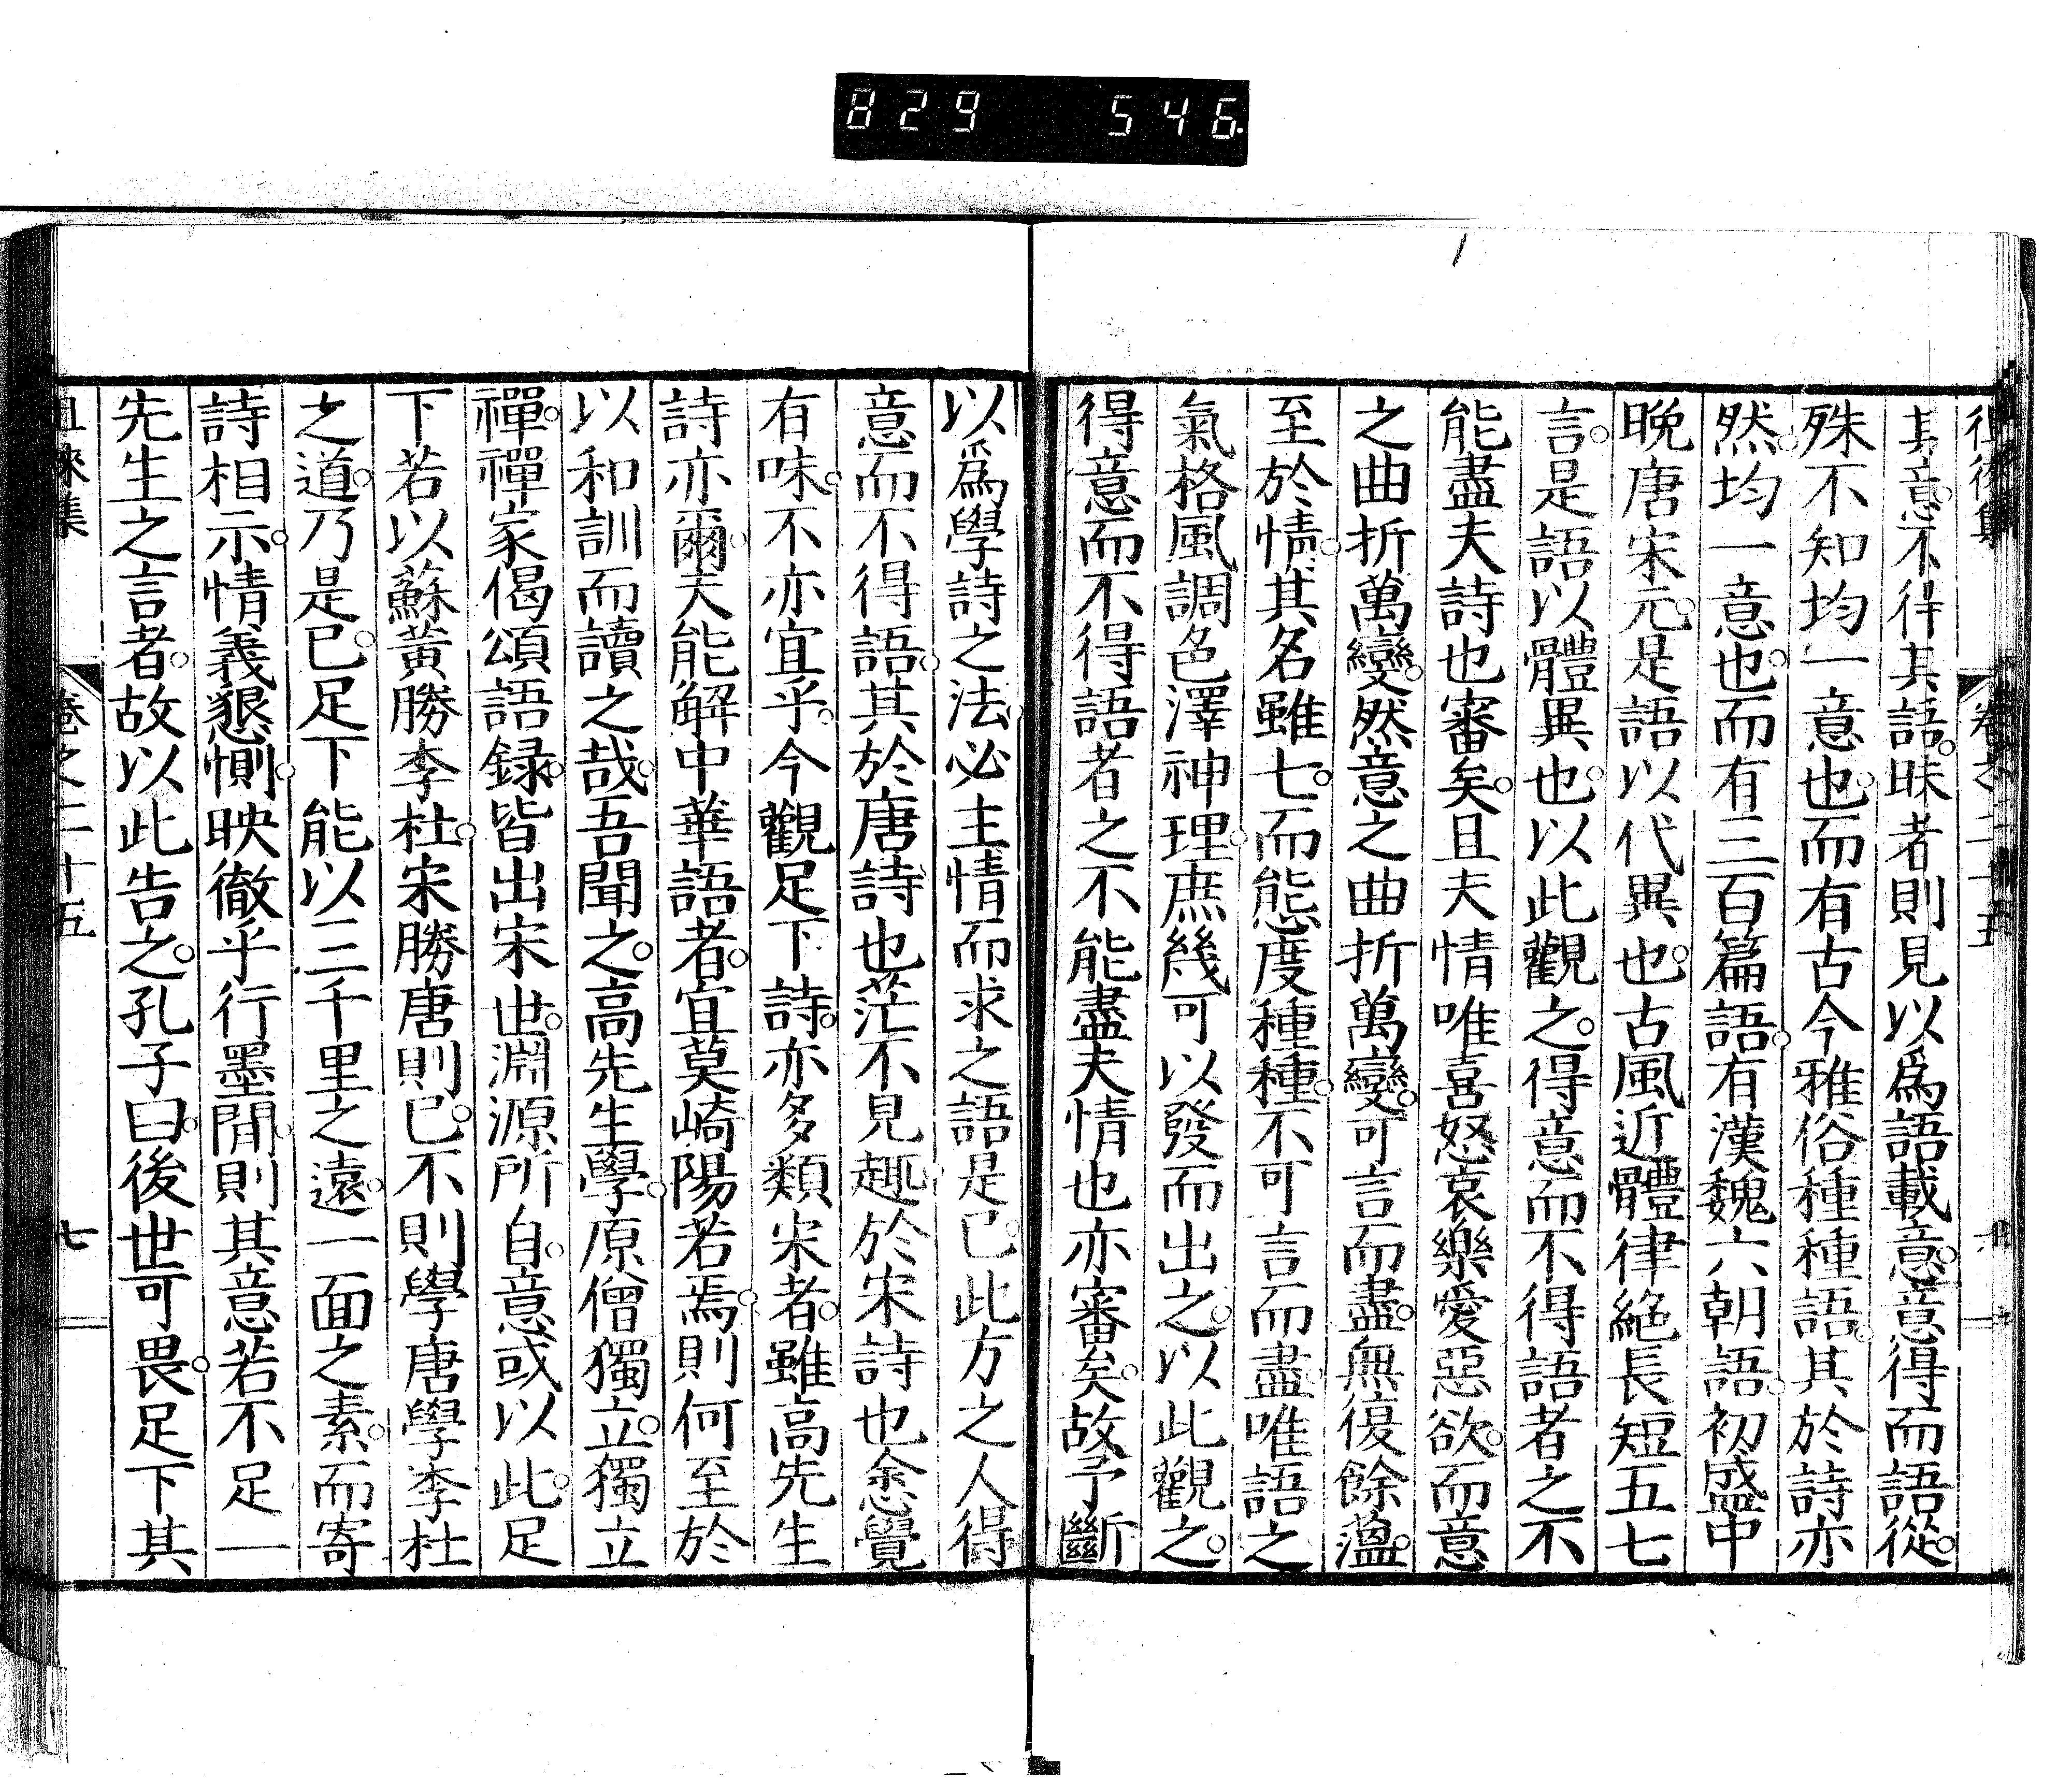 829 546
徂徠集 卷之二十五 六
其意。不得其語。昧者則見以爲語載意。意得而語從。
殊不知均一意也。而有古今雅俗種種語。其於詩亦
然。均一意也。而有三百篇語。有漢魏六朝語。初盛中
晚唐宋元。是語以代異也。古風近體律絕長短五七
言。是語以體異也。以此觀之。得意而不得語者之不
能盡夫詩也審矣。且夫情唯喜怒哀樂愛惡欲。而意
之曲折萬變。然意之曲折萬變。可言而盡。無復餘蘊。
至於情。其名雖七。而態度種種。不可言而盡。唯語之
氣格風調色澤神理。庶幾可以發而出之。以此觀之。
得意而不得語者之不能盡夫情也亦審矣。故予斷
以爲學詩之法。必主情而求之語是已。此方之人得
意而不得語。其於唐詩也茫不見趣。於宋詩也愈覺
有味。不亦宜乎。今觀足下詩。亦多類宋者。雖高先生
詩亦爾。夫能解中華語者。宜莫崎陽若焉。則何至於
以和訓而讀之哉。吾聞之。高先生學。原僧獨立。獨立
禪。禪家偈頌語録。皆出宋世。淵源所自。意或以此。足
下若以蘇黃勝李杜。宋勝唐則已。不則學唐學李杜
之道。乃是已。足下能以三千里之遠。一面之素。而寄
詩相示。情義懇惻。映徹乎行墨間。則其意若不足一
先生之言者。故以此告之。孔子曰。後世可畏。足下其
徂徠集 卷之二十五 七